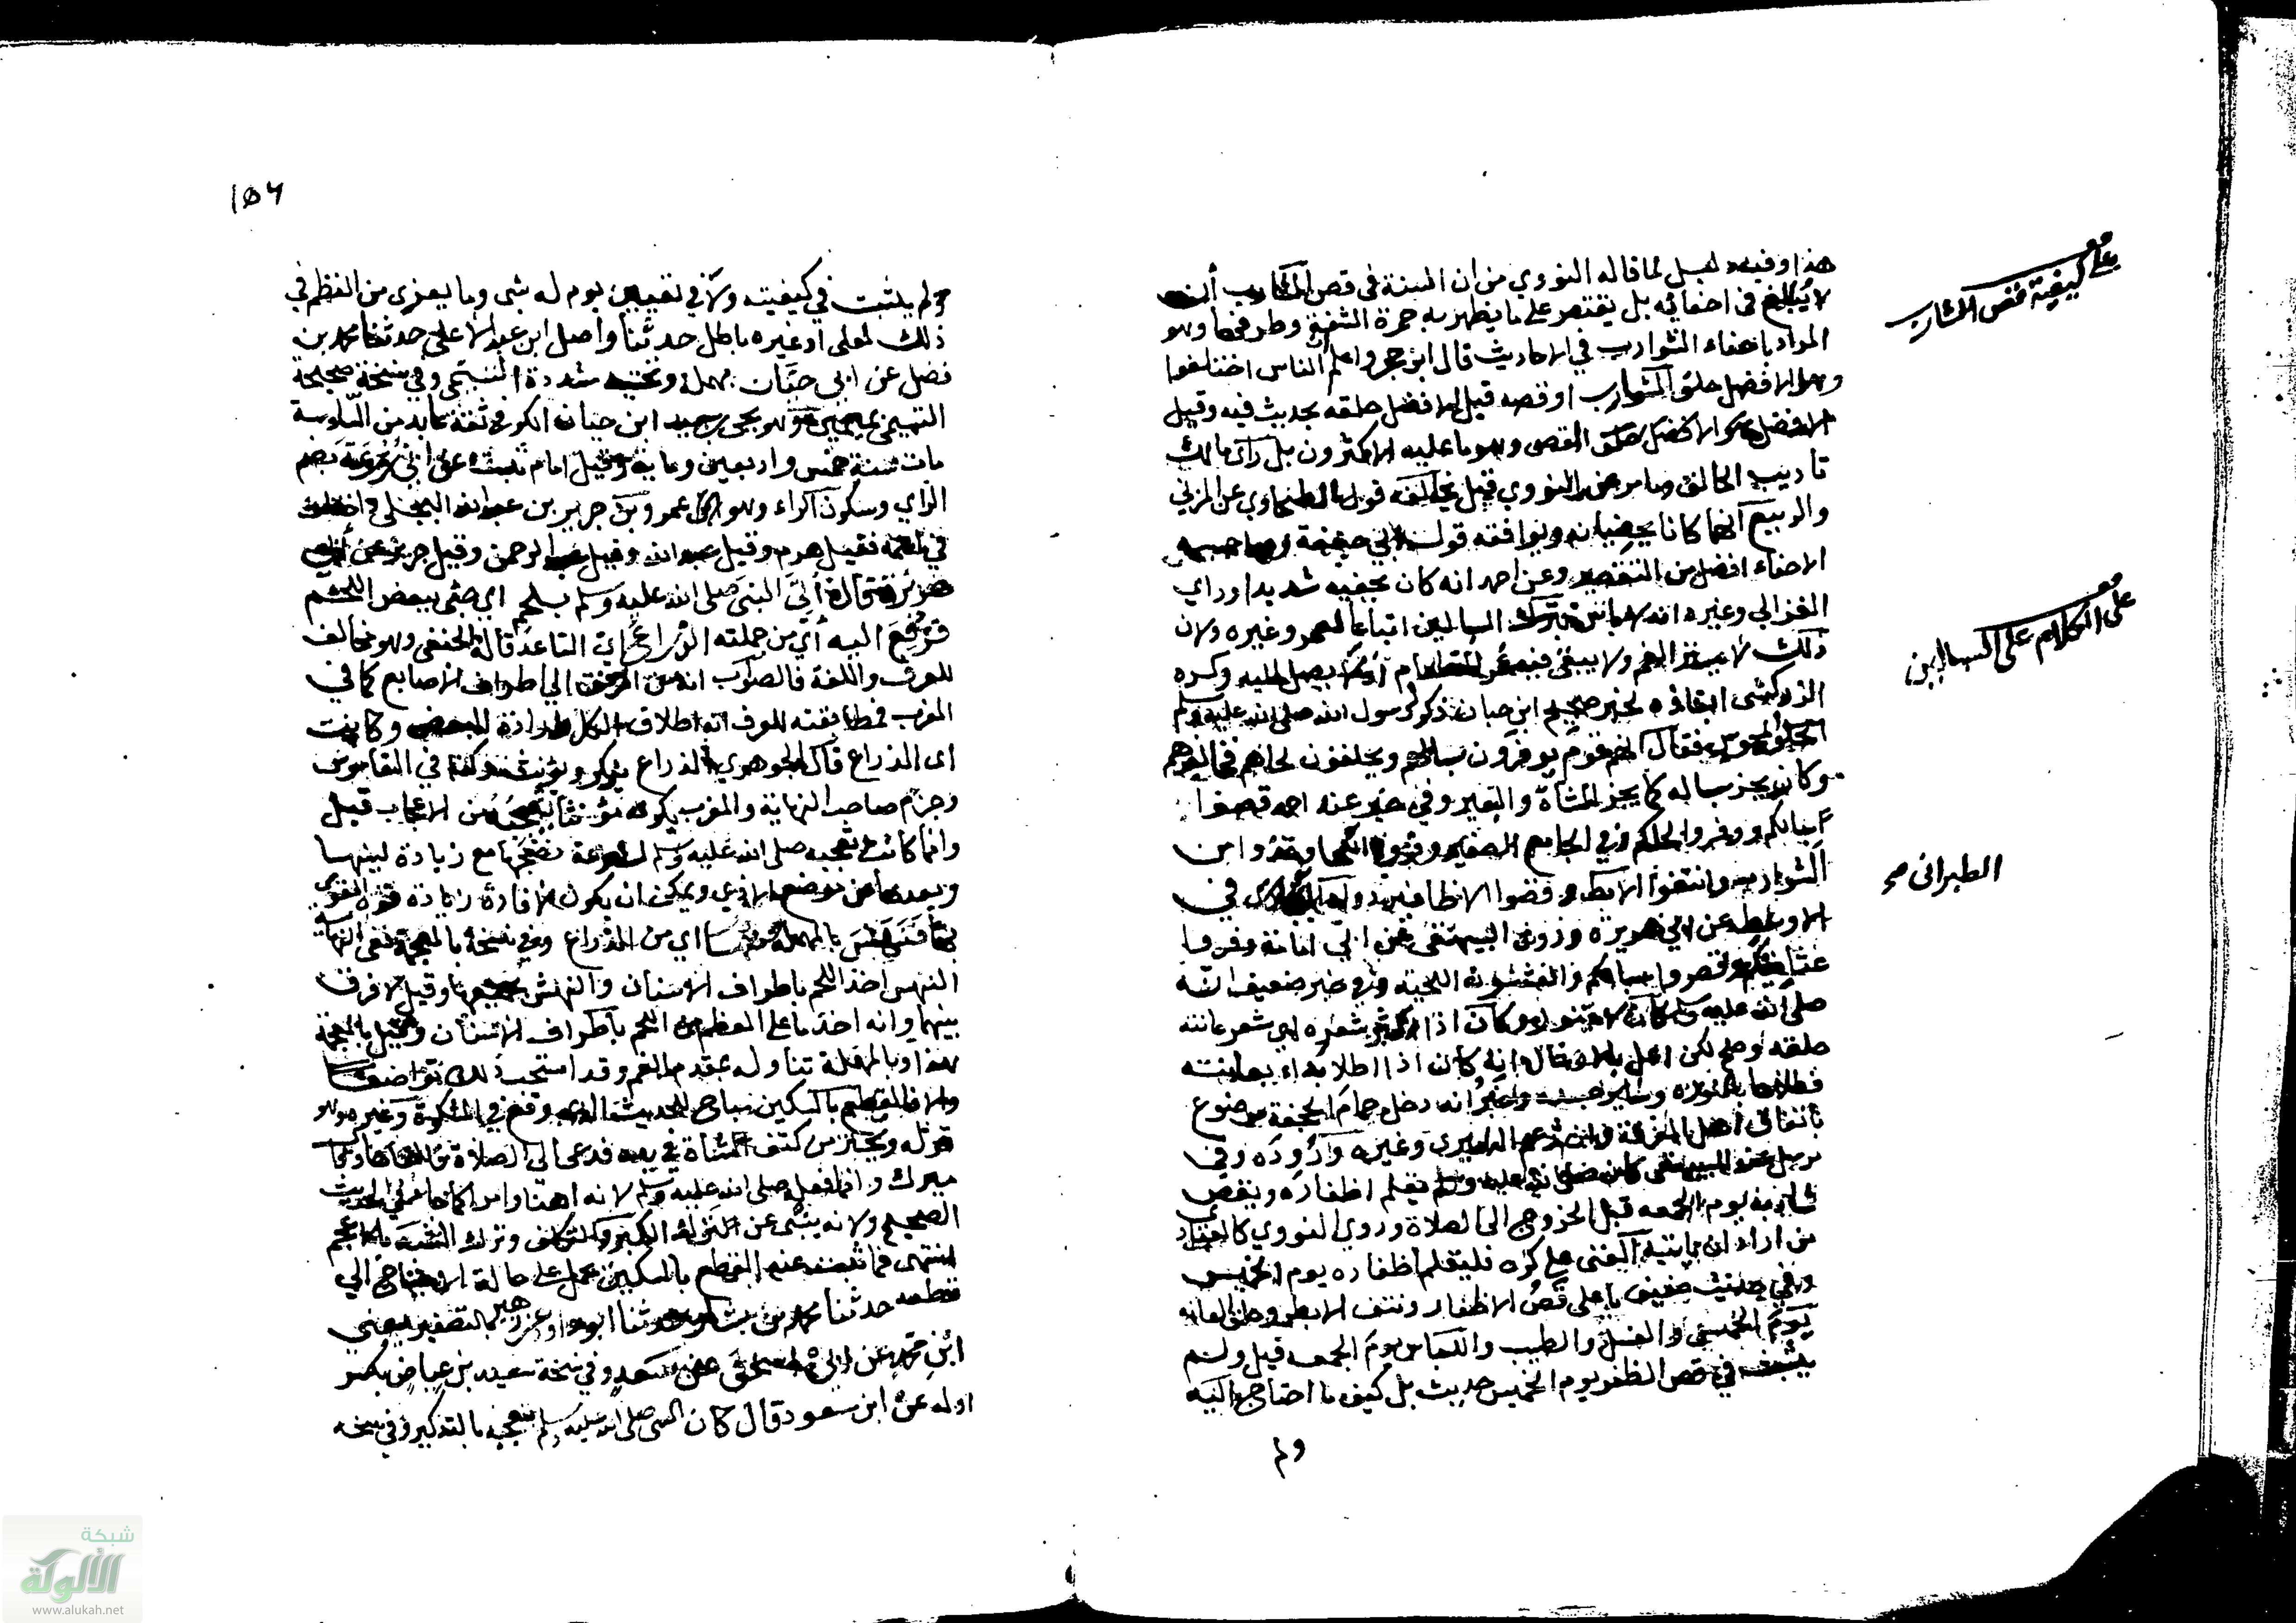 هذا وفيه دليل لما قاله النووي من ان السنة في قص الشارب أن
لا يبالغ في احفائه بل يقتصر على ما يظهر به حمرة الشفة وطرفها وهو
المراد باحفاء الشوارب في الاحاديث قال ابن حجر واعلم ان الناس اختلفوا
وهل الافضل حلق الشوارب او قصه قيل الافضل حلقه بحديث فيه وقيل
الافضل القص وهو ما عليه الاكثرون بل رأى مالك
تاديب الحالق وما مر عن النووي قيل يخالفه قول الطحاوي عن المزني
والربيع انهما كانا يحفيانه ويوافقه قول ابي حنيفة وصاحبيه
الاحفاء افضل من التقصير وعن احمد انه كان يحفيه شديدا وراي
الغزالي وغيره انه لا باس بترك السبالين اتباعا لعمر وغيره ولان
ذلك لا يستر الفم ولا يبقى فيه غمر الطعام اذ لا يصل اليه وكره
الزركشي ابقاؤه لخبر صحيح ابن حبان ذكر لرسول الله صلى الله عليه وسلم
المجوس فقال انهم قوم يوفرون سبالهم ويحلقون لحاهم فخالفوهم
وكان يجز سباله كما يجز الشاة والبعير وفي خبر عند احمد قصوا
سبالكم ووفروا لحاكم وفي الجامع الصغير وفروا اللحا وخذوا من
الشوارب وانتفوا الابط وقصوا الاظافير رواه الطبراني في
الاوسط عن ابي هريرة وروى البيهقي عن ابي امامة وفروا
عثانينكم وقصروا سبالكم والعثنون اللحية وفي خبر ضعيف انه
صلى الله عليه وسلم كان لا يتنور وكان اذا كثر شعره اي شعر عانته
حلقه وصح لكن اعل بالارسال انه كان اذا اطلا بداء بعانته
فطلاها بالنورة وسائر جسده وخبر انه دخل حمام الجحفة موضوع
باتفاق اهل المعرفة وان زعم الدميري وغيره وروده وفي
مرسل عند البيهقي كان صلى الله عليه وسلم يقلم اظفاره ويقص
شاربه يوم الجمعة قبل الخروج الى الصلاة وروى النووي كالعبادي
من اراد ان ياتيه الغنى على كره فليقلم اظفاره يوم الخميس
وفي حديث ضعيف يا علي قص الاظفار ونتف الابط وحلق العانة
يوم الخميس والغسل والطيب واللباس يوم الجمعة قيل ولم
يثبت في قص الظفر يوم الخميس حديث بل كيف ما احتاج اليه
ولم
على كيفية قص الشارب
على الكلام على السبالين
الطبراني صح
١٥٦
ولم يثبت في كيفيته ولا في تعيين يوم له شي وما يعزى من النظم في
ذلك لعلي او غيره باطل حدثنا واصل ابن عبد الاعلى حدثنا محمد بن
فضل عن ابي حيان بمهملة وتحتية مشددة التيمي وفي نسخة صحيحة
التيمي بميمين وهو يحيى بن سعيد ابن حيان الكوفي ثقة عابد من السادسة
مات سنة خمس واربعين وماية وقيل امام ثبت عن ابي زرعة بضم
الزاي وسكون الراء وهو ابن عمرو بن جرير بن عبد الله البجلي اختلف
في اسمه فقيل هرم وقيل عبد الله وقيل عبد الرحمن وقيل جرير عن ابي
هريرة قال اتي النبي صلى الله عليه وسلم بلحم اي جئ ببعض اللحم
فرفع اليه اي من جملته الذراع اي الساعد قاله الحنفي وهو مخالف
للعرف واللغة فالصواب انه من المرفق الى اطراف الاصابع كما في
المغرب فمطابقته للعرف انه اطلاق الكل وارادة للبعض وكانت
اي الذراع قال الجوهري الذراع يذكر ويؤنث وكذا في القاموس
وجزم صاحب النهاية والمغرب بكونه مؤنثا تعجبه من الاعجاب قيل
وانما كانت تعجبه صلى الله عليه وسلم لسرعة نضجها مع زيادة لينها
وبعدها عن موضع الاذى ويمكن ان يكون لافادة زيادة قوة القوى
بها فنهس بالمهملة منها اي من الذراع وفي نسخة بالمعجمة ففي النهاية
النهس اخذ اللحم باطراف الاسنان والنهش بجميعها وقيل لا فرق
بينهما وانه اخذ ما على العظم من اللحم باطراف الاسنان وقيل بالمعجمة
هذا وبالمهملة تناوله بمقدم الفم وقد استحب ذلك تواضعا
والا فالقطع بالسكين مباح للحديث الذي وقع في المشكاة وغيره وهو
قوله ويحتز من كتف الشاة في يده فدعي الى الصلاة فالقاها وقال
ميرك وانما فعله صلى الله عليه وسلم لانه اهنأ وامرأ كما جاء في الحديث
الصحيح ولانه ينبئ عن ترك الكبر والتكلف وترك التشبه بالاعاجم
انتهى فما ثبت عنه القطع بالسكين محمول على حالة الاحتياج الى
قطعه حدثنا محمد بن بشار حدثنا ابو داود عن زهير بالتصغير يعني
ابن محمد عن ابي اسحق عن سعد وفي نسخة سعيد بن عياض بكسر
اوله عن ابن مسعود قال كان النبي صلى الله عليه وسلم يعجبه بالتذكير وفي نسخة
شبكة
الألوكة
www.alukah.net